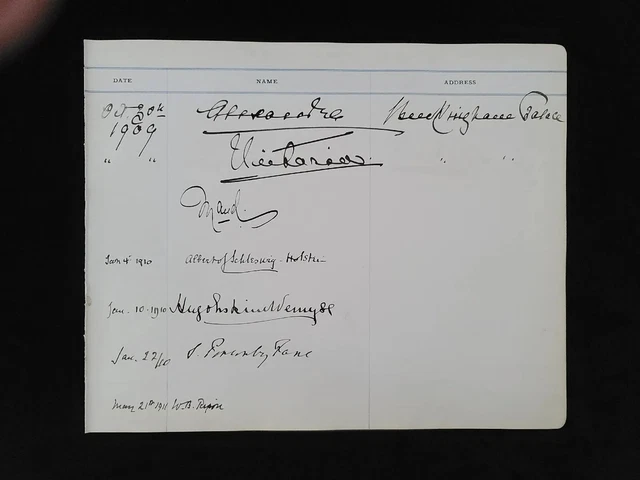 DATE NAME ADDRESS
Oct. 30th Alexandra Buckingham Palace
1909
" " Victoria " "
Maud.
Jan 4 1910 Albert of Schleswig-Holstein
Jan. 10. 1910 Hugo Erskine Wemyss
Jan. 22/10 S. Ponsonby Fane
May 21st 1911 W.B. Ripon